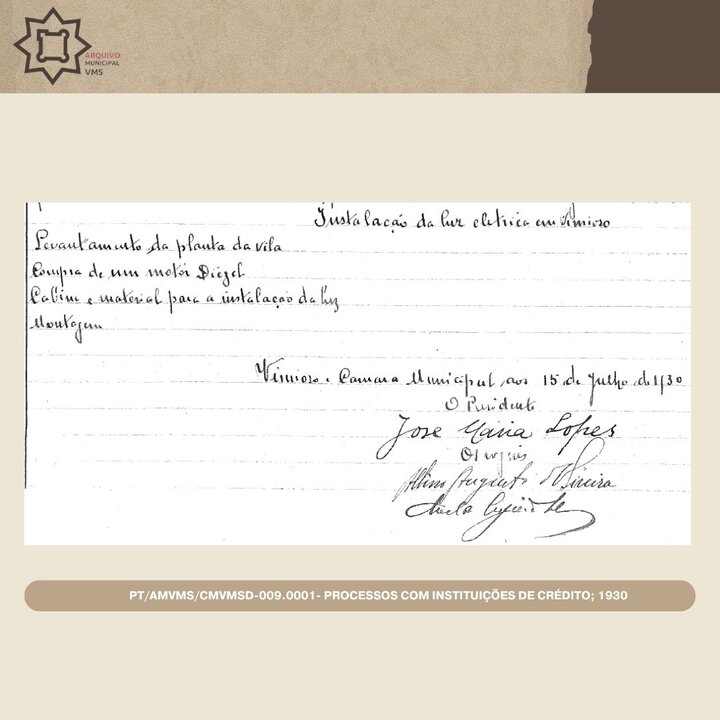 ARQUIVO
MUNICIPAL
VMS
Instalação da luz eletrica em Vimioso
Levantamento da planta da vila
Compra de um motor Diezel
Cabine e material para a instalação da luz
Montagem
Vimioso e Camara Municipal aos 15 de Julho de 1930
O Presidente
Jose Maria Lopes
Os
Augusto
PT/AMVMS/CMVMSD-009.0001- PROCESSOS COM INSTITUIÇÕES DE CRÉDITO; 1930